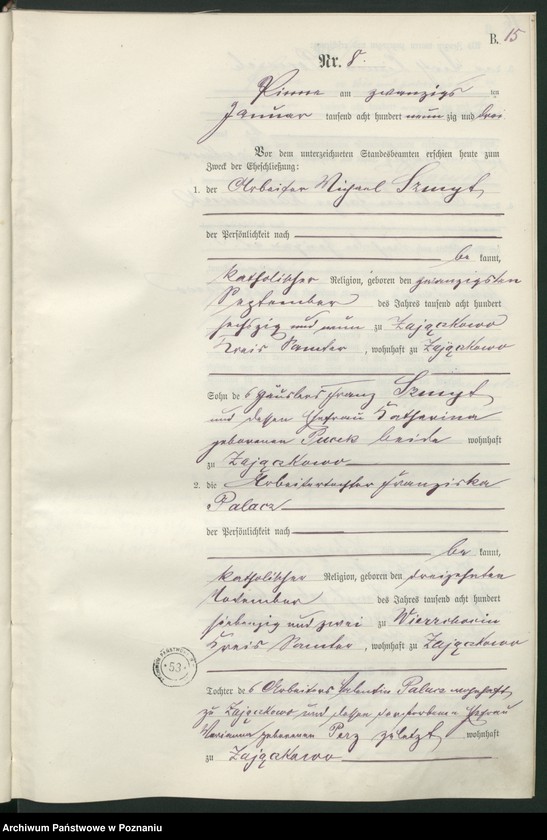 B. 15
Nr. 8.
Pinne am zwanzigsten
Januar tausend acht hundert neunzig und drei
Vor dem unterzeichneten Standesbeamten erschien heute zum
Zweck der Eheschließung:
1. der Arbeiter Michael Szmyt
der Persönlichkeit nach
be kannt,
katholischer Religion, geboren den zwanzigsten
September des Jahres tausend acht hundert
sechszig und neun zu Zajączkowo
Kreis Samter, wohnhaft zu Zajączkowo
Sohn des Häuslers Franz Szmyt
und dessen Ehefrau Katharina
geborenen Pucek beide wohnhaft
zu Zajączkowo
2. die Arbeitertochter Franziska
Palacz
der Persönlichkeit nach
be kannt,
katholischer Religion, geboren den dreizehnten
November des Jahres tausend acht hundert
siebenzig und zwei zu
Kreis Samter, wohnhaft zu Zajączkowo
Tochter des Arbeiters Valentin Palacz wohnhaft
zu Zajączkowo und dessen verstorbenen Ehefrau
Marianna geborenen Perz zuletzt wohnhaft
zu Zajączkowo
53
Archiwum Państwowe w Poznaniu